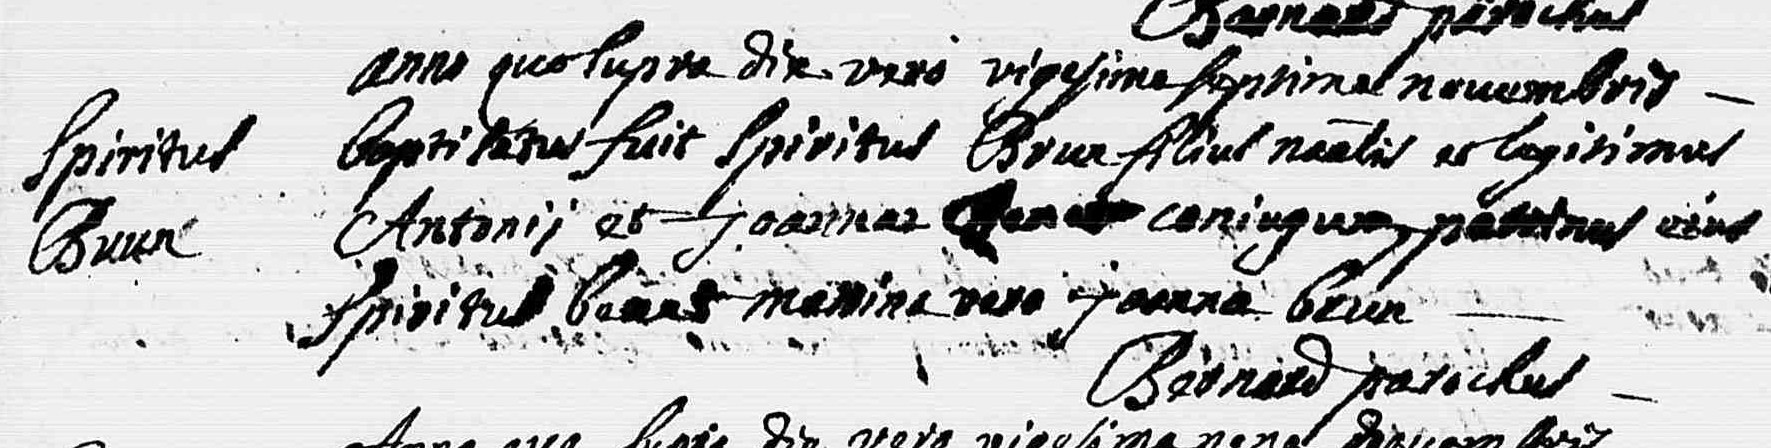 Barnard parochus
anno quo supra die vero vigesima septima novembris –
Spiritus baptisatus fuit Spiritus Brun filius nãalis et legitimus
Brun Antonij et Joannae coniugum, patrinus eius
Spiritus matrina vero Joanna brun —
Barnard parochus –
Anno quo supra die vero vigesima nona novembris